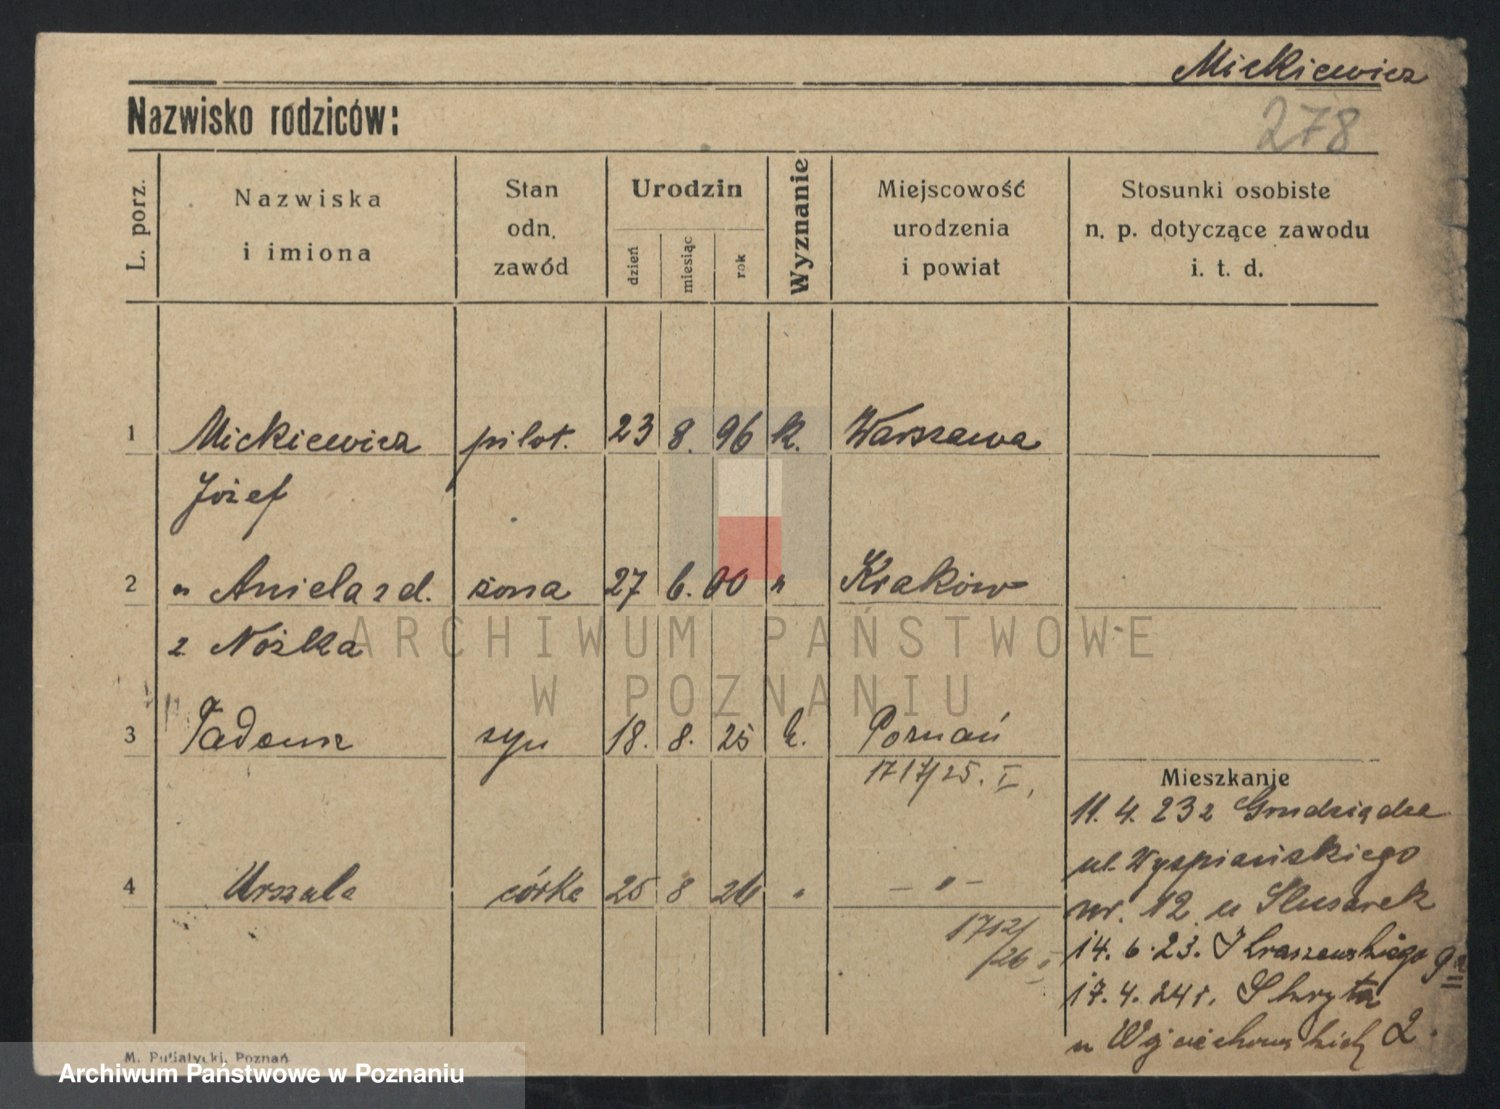 Mickiewicz
278
Nazwisko rodziców:
L. porz.
Nazwiska
i imiona
Stan
odn.
zawód
Urodzin
dzień
miesiąc
rok
Wyznanie
Miejscowość
urodzenia
i powiat
Stosunki osobiste
n. p. dotyczące zawodu
i. t. d.
1 Mickiewicz pilot. 23 8. 96 k. Warszawa
Józef
2 " Aniela zd. żona 27 6. 00 " Kraków
z Nożka
3 Tadeusz syn 18. 8. 25 k. Poznań
1717/25. I,
Mieszkanje
11. 4. 23 z Grudziądza
ul. Wyspiańskiego
4 Urszula córka 25 8 26 " — " —
nr. 12 u Slusarek
1712/
/26 I
14. 6. 23. Kraszewskiego 9a
17. 4. 24 r. Skryta
u Wojciechowskich 2.
M. Putiatycki, Poznań
ARCHIWUM PAŃSTWOWE
W POZNANIU
Archiwum Państwowe w Poznaniu